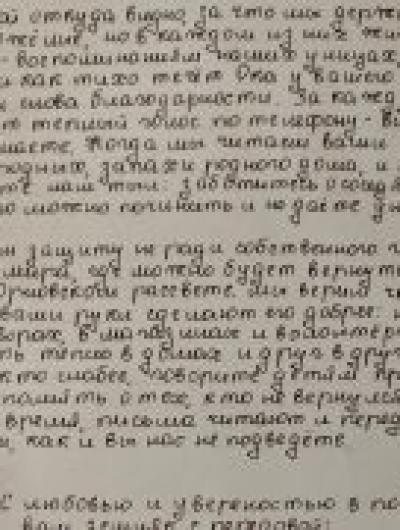 откуда видно, за что мы держ
но в каждом из них жи
воспоминаниям наших улицах,
как тихо течёт Ока у вашего
слова благодарности. За кажд
тёплый голос по телефону - в
Когда мы читаем ваши
запахи родного дома, и
наш тыл: заботитесь о
можно починить и не даёте
защиту не ради собственного
мира, где можно будет вернуть
Орловском рассвете. Мы верим
ваши руки сделают его добрее:
в магазинах и волонтёр
тепло в домах и друг в друг
кто слабее, говорите детям пр
память о тех, кто не вернулся
время, письма читают и перед
как и вы нас не подведёте.
С любовью и уверенностью в по
ваш земляк с передовой!